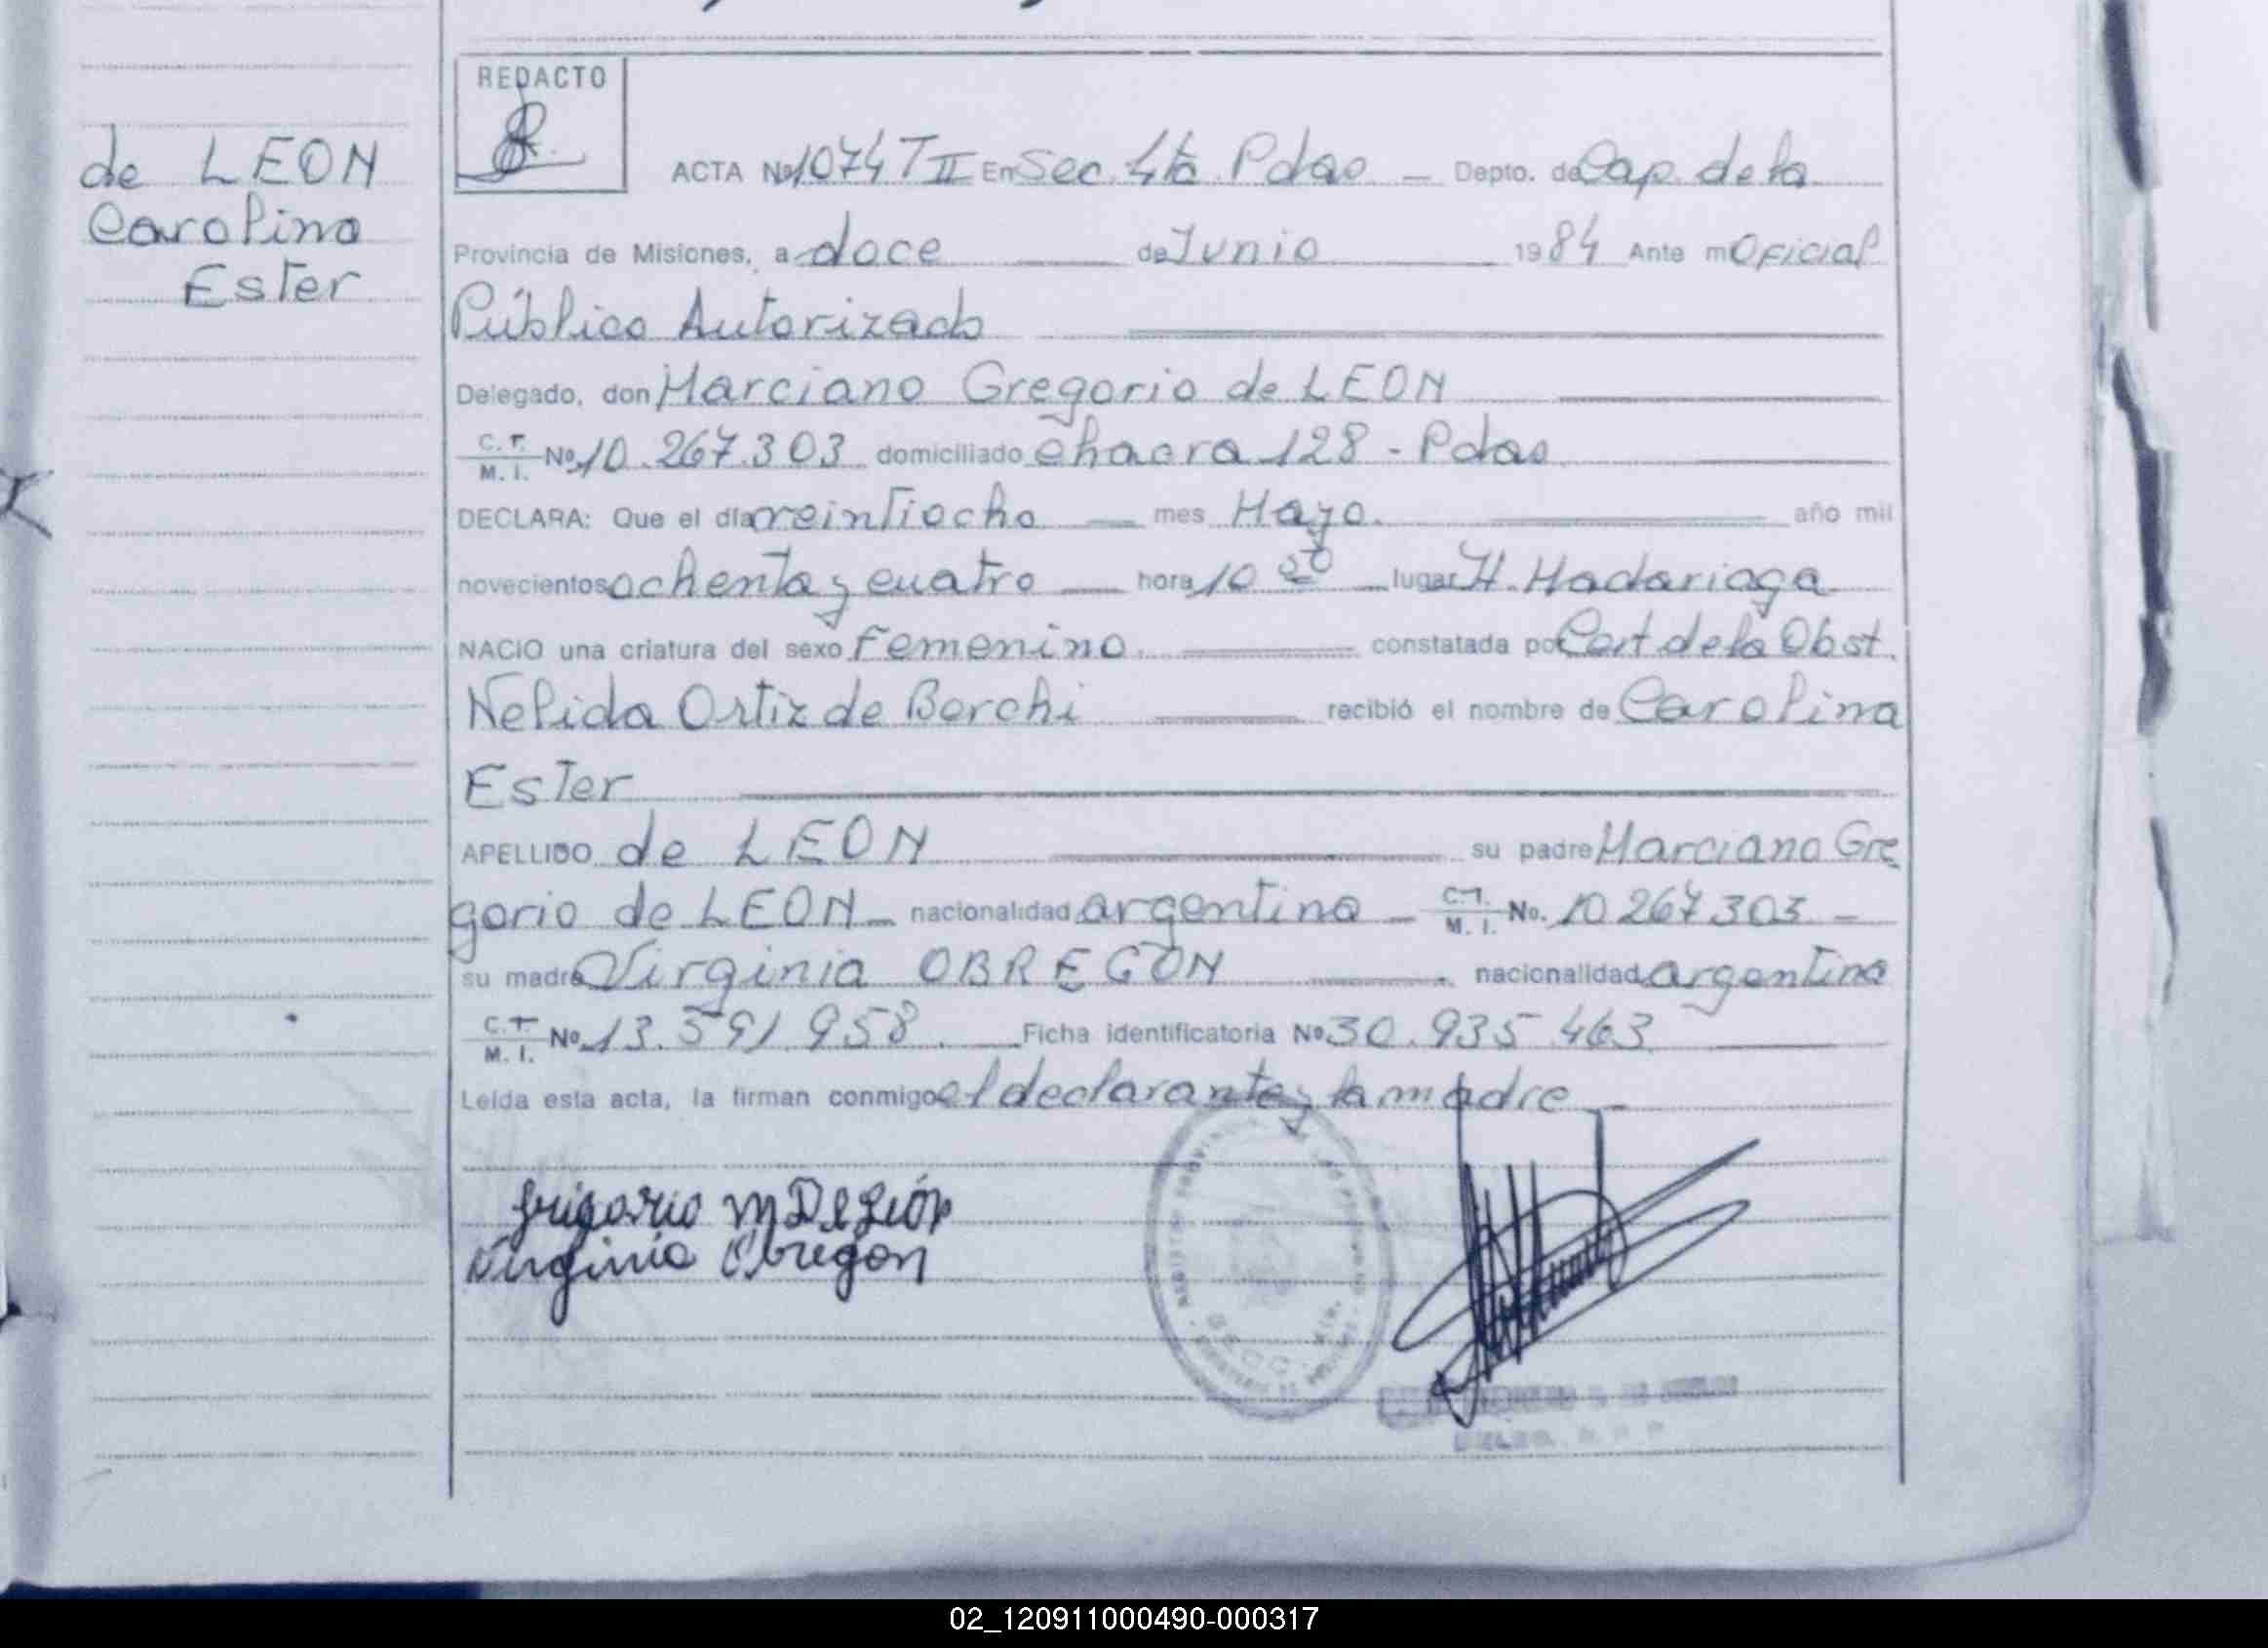 REDACTO
de LEON
Carolina
Ester
ACTA Nº 1074 T II En Sec. 4ta Pdas — Depto. de Cap. de la
Provincia de Misiones, a doce de Junio 1984 Ante mí Oficial
Público Autorizado
Delegado, don Marciano Gregorio de LEON
C. T. M. I. Nº 10.267.303 domiciliado chacra 128 - Pdas
DECLARA: Que el día veintiocho mes Mayo. año mil
novecientos ochenta y cuatro hora 10 lugar H. Madariaga
NACIO una criatura del sexo Femenino constatada por Cert de la Obst.
Nelida Ortiz de Borchi recibió el nombre de Carolina
Ester
APELLIDO de LEON su padre Marciano Gre
gorio de LEON nacionalidad argentina C.I. M. I. No. 10.267.303 -
su madre Virginia OBREGON nacionalidad argentina
C.T. M. I. Nº 13.591.958. Ficha identificatoria Nº 30.935.463
Leída esta acta, la firman conmigo el declarante y la madre
Grigorio M De León
Virginia Obregon
02_120911000490-000317